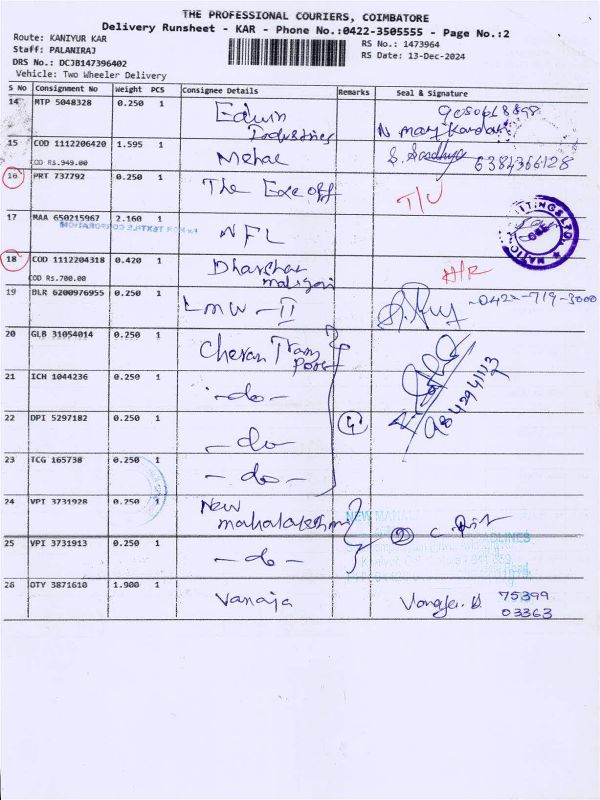 THE PROFESSIONAL COURIERS, COIMBATORE
Delivery Runsheet - KAR - Phone No.:0422-3505555 - Page No.:2
Route: KANIYUR KAR
Staff: PALANIRAJ
DRS No.: DCJB147396402
Vehicle: Two Wheeler Delivery
RS No.: 1473964
RS Date: 13-Dec-2024
S No Consignment No Weight PCS Consignee Details Remarks Seal & Signature
14 MTP 5048328 0.250 1 Edwin Industries
15 COD 1112206420 1.595 1 Mehac S. Sandhya 6384366128
COD Rs.949.00
16 PRT 737792 0.250 1 The Exe off T/U
17 MAA 650215967 2.160 1 NFL
18 COD 1112204318 0.420 1 Dharshan
COD Rs.700.00
19 BLR 6200976955 0.250 1 LMW - II 0422-719-3000
20 GLB 31054014 0.250 1 Cheran Transport
21 ICH 1044236 0.250 1 -do-
22 DPI 5297182 0.250 1 -do- 4
23 TCG 165738 0.250 1 -do-
24 VPI 3731928 0.250 1 New mahalakshmi 2
25 VPI 3731913 0.250 1 -do-
26 OTY 3871610 1.900 1 Vanaja 75399
03363